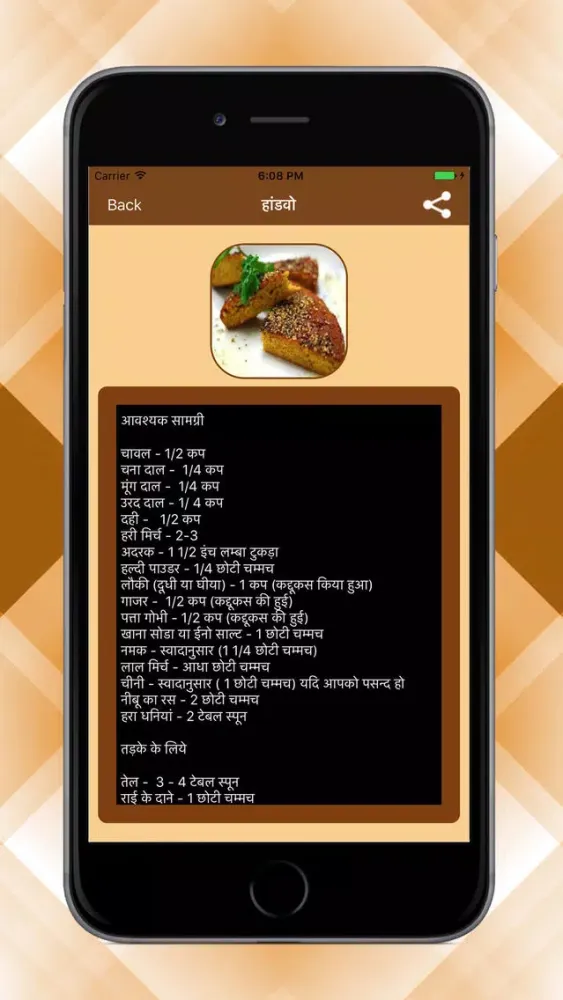 Carrier
6:08 PM
Back
हांडवो
आवश्यक सामग्री
चावल - 1/2 कप
चना दाल - 1/4 कप
मूंग दाल - 1/4 कप
उरद दाल - 1/ 4 कप
दही - 1/2 कप
हरी मिर्च - 2-3
अदरक - 1 1/2 इंच लम्बा टुकड़ा
हल्दी पाउडर - 1/4 छोटी चम्मच
लौकी (दूधी या घीया) - 1 कप (कद्दूकस किया हुआ)
गाजर - 1/2 कप (कद्दूकस की हुई)
पत्ता गोभी - 1/2 कप (कद्दूकस की हुई)
खाना सोडा या ईनो साल्ट - 1 छोटी चम्मच
नमक - स्वादानुसार (1 1/4 छोटी चम्मच)
लाल मिर्च - आधा छोटी चम्मच
चीनी - स्वादानुसार ( 1 छोटी चम्मच) यदि आपको पसन्द हो
नीबू का रस - 2 छोटी चम्मच
हरा धनियां - 2 टेबल स्पून
तड़के के लिये
तेल - 3 - 4 टेबल स्पून
राई के दाने - 1 छोटी चम्मच